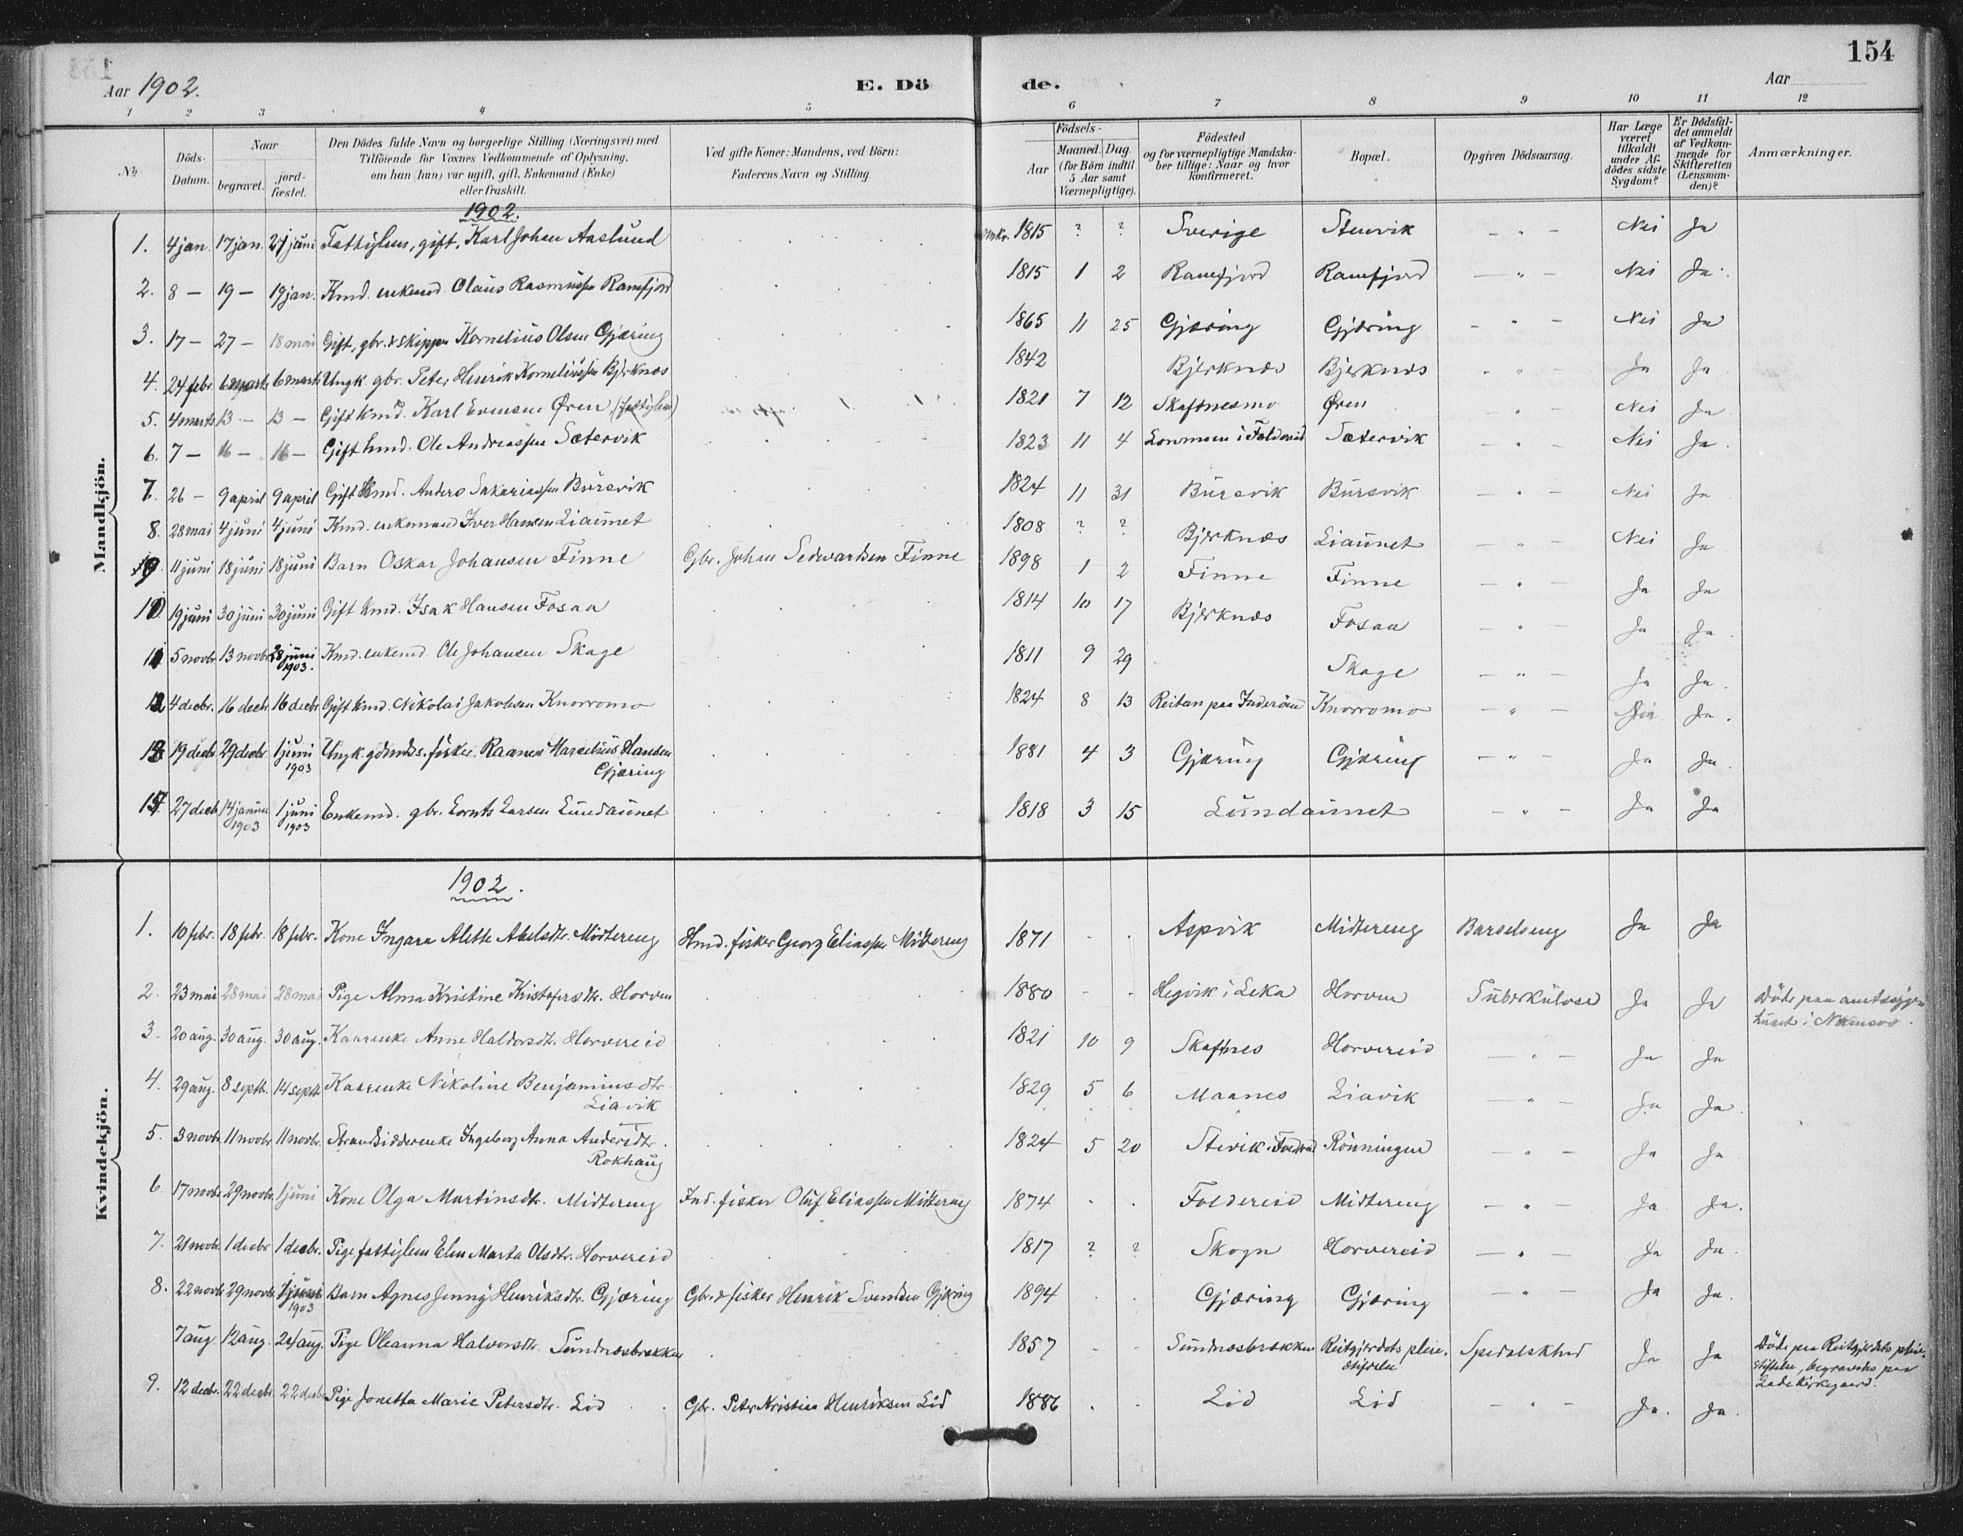 154
Aar 1902. E. Dö de. Aar
1 2 3 4 5 6 7 8 9 10 11 12
No. Döds-Datum. Naar begravet. jordfæstet. Den Dödes fulde Navn og borgerlige Stilling (Næringsvei) med Tilföiende for Voxnes Vedkommende af Oplysning, om han (hun) var ugift, gift, Enkemand (Enke) eller fraskilt. Ved gifte Koner: Mandens, ved Börn: Faderens Navn og Stilling. Födsels- Aar Maaned. Dag. (for Börn indtil 5 Aar samt Værnepligtige). Födested og for værnepligtige Mandskaber tillige: Naar og hvor konfirmeret. Bopæl. Opgiven Dödsaarsag. Har Læge været tilkaldt under Afdödes sidste Sygdom? Er Dödsfaldet anmeldt af Vedkommende for Skifteretten (Lensmanden)? Anmærkninger.
Mandkjön.
1902.
1. 4 jan. 17 jan. 27 juni Fattiglem, gift, Karl Johan Aaslund 1815 ? ? Sverige Stenvik - " - Nei Ja
2. 8 - 19 - 19 jan. Kmd. enkemd Olaus Rasmussen Ramfjord 1815 1 2 Ramfjord Ramfjord - " - Nei Ja.
3. 17 - 27 - 18 mai Gift, gbr. & skipper Kornelius Olsen Gjæring 1865 11 25 Gjæring Gjæring - " - Nei Ja
4. 24 febr. 6 marts 6 marts Ungk gbr. Peter Henrik Korneliussen Bjerknæs 1842 Bjerknæs Bjerknæs - " - Ja Ja.
5. 4 marts 13 - 13 - Gift kmd. Karl Evensen Øren (fattiglem) 1821 7 12 Skaftnesmo Øren - " - Nei Ja
6. 7 - 16 - 16 - Gift hmd. Ole Andreassen Sætervik 1823 11 4 Lonmoen i Foldereid Sætervik - " - Nei Ja.
7. 26 - 9 april 9 april Gift Hmd. Anders Sakariassen Bursvik 1824 11 31 Bursvik Bursvik - " - Nei Ja
8. 28 mai 4 juni 4 juni Kmd. enkemand Iver Hansen Liaunet 1808 ? ? Bjerknæs Liaunet - " - Nei Ja
9. 11 juni 18 juni 18 juni Barn Oskar Johansen Finne Gbr. Johan Sedvardsen Finne 1898 1 2 Finne Finne - " - Ja Ja
10. 19 juni 30 juni 30 juni Gift kmd. Isak Hansen Fosaa 1814 10 17 Bjerknæs Fosaa - " - Ja Ja.
11 5 novbr. 13 novbr. 28 juni 1903. Kmd. enkemd Ole Johansen Skage 1811 9 29 Skage - " - Ja Ja.
12 4 decbr. 16 decbr 16 decbr Gift kmd. Nikolai Jakobsen Knorromo 1824 8 13 Reitan paa Inderöen Knorromo - " - Nei Ja.
13 19 decbr 29 decbr 1 juni 1903 Ungk. gdmds. fisker. Raanes Marselius Hansen Gjæring 1881 4 3 Gjæring Gjæring - " - Ja Ja.
14 27 decb. 14 januar 1903 1 juni 1903 Enkemd. gbr. Lornts Larsen Lundaunet 1818 3 15 Lundaunet - " - Ja Ja
Kvindekjön.
1902.
1. 10 febr. 18 febr. 18 febr. Kone Ingara Alette Abelsdtr. Midtereng Hmd. fisker Georg Eliassen Midtereng 1871 - . Aspvik Midtereng Barselseng Ja Ja
2. 23 mai 28 mai 28 mai Pige Alma Kristine Kristofersdtr. Horven 1880 - . Hegvik i Leka Horven Tuberkulose Ja Ja Döde paa amtssygehuset i Namsos.
3. 20 aug. 30 aug. 30 aug. Kaarenke Anne Haldorsdtr. Horvereid 1821 10 9 Skaftnes Horvereid - " - Ja Ja
4. 29 aug. 8 septb. 14 septb. Kaarenke Nikoline Benjaminsdtr. Liavik 1829 5 6 Maanes Liavik - " - Ja Ja.
5. 3 novbr. 11 novbr. 11 novbr. Strandsidderenke Ingeborg Anna Andersdtr. Rokhaug 1824 5 20 Stevik i Foldereid Rönningen - " - Ja Ja
6. 17 novbr. 29 novbr. 1 juni Kone Olga Martinsdtr. Midtereng Ind. fisker Oluf Eliassen Midtereng 1874 . . Foldereid Midtereng - " - Ja Ja.
7. 21 novbr. 1 decbr 1 decbr. Pige fattiglem Elen Marta Olsdtr. Horvereid 1817 ? ? Skogn Horvereid - " - Ja Ja.
8. 22 novbr 29 novbr. 1 juni 1903 Barn Agnes Jenny Henriksdtr. Gjæring Gbr. & fisker Henrik Svendsen Gjæring 1894 . . Gjæring Gjæring - " - Ja Ja.
7 aug. 12 aug. 24 aug. Pige Oleanna Halvorsdtr. Sundnæsbrækken 1857 - . Sundnæsbrækken Reitgjerdets pleiestiftelse Spedalskhed Ja Ja Döde paa Reitgjerdets pleiestiftelse, begravedes paa Lade Kirkegaard.
9. 12 decbr. 22 decbr 22 decbr Pige Jonetta Marie Petersdtr. Lid Gbr. Peter Kristian Henriksen Lid 1886 . . Lid Lid - " - Ja. Ja.